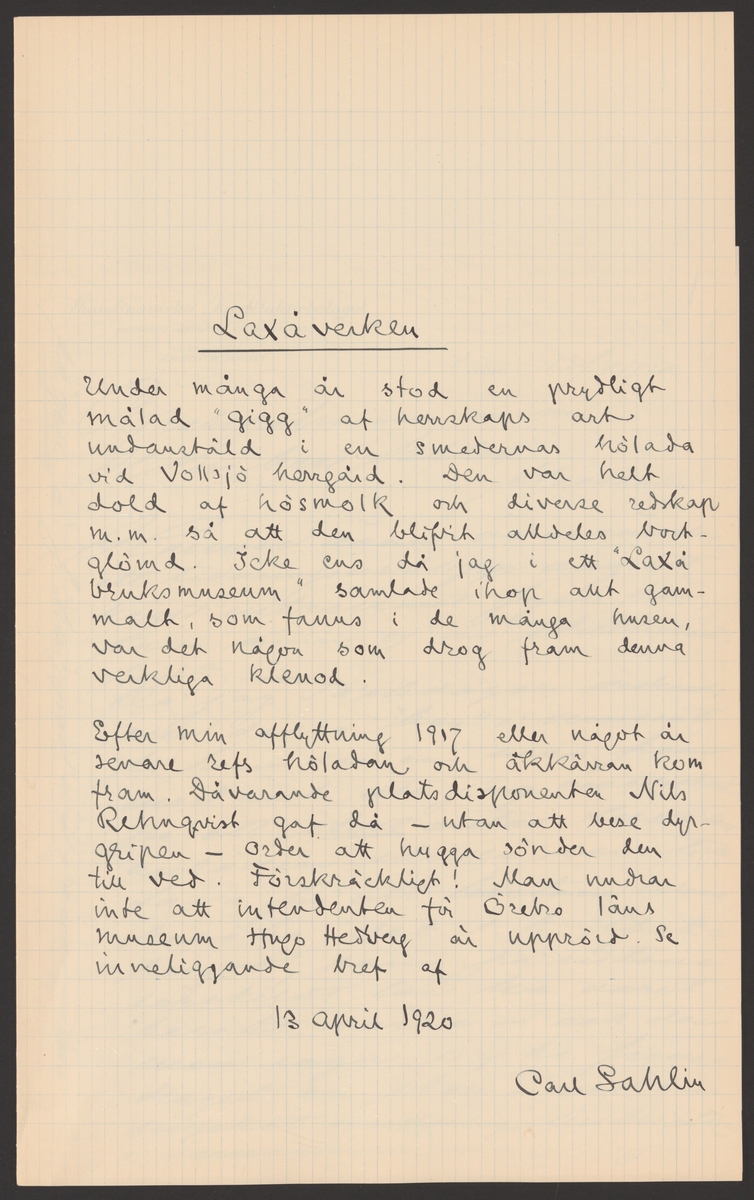 Laxåverken
Under många år stod en prydligt
målad "gigg" af herrskaps art
undanstäld i en smedernas hölada
vid Vollsjö herrgård. Den var helt
dold af hösmolk och diverse redskap
m.m. så att den blifvit alldeles bort-
glömd. Icke ens då jag i ett "Laxå
bruksmuseum" samlade ihop allt gam-
malt, som fanns i de många husen,
var det någon som drog fram denna
verkliga klenod.
Efter min afflyttning 1917 eller något år
senare refs höladan och åkkärran kom
fram. Dåvarande platsdisponenten Nils
Rehnqvist gaf då – utan att bese dyr-
gripen – order att hugga sönder den
till ved. Förskräckligt! Man undrar
inte att intendenten för Örebro läns
museum Hugo Hedberg är upprörd. Se
inneliggande bref af
13 april 1920
Carl Sahlin